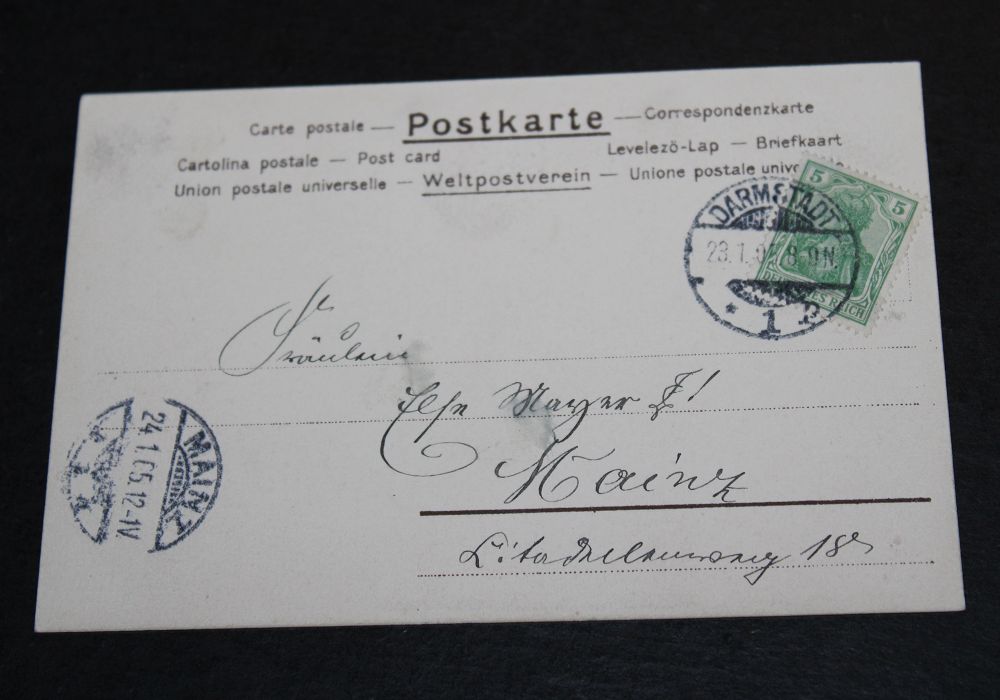 Carte postale — Postkarte — Correspondenzkarte
Cartolina postale — Post card Levelezö-Lap — Briefkaart
Union postale universelle — Weltpostverein — Unione postale
5 5
DARMSTADT
23.1. 8-9N.
* 1
REICH
Fräulein
Else Mayer
Mainz
Citadellenweg 18
MAINZ
24.1.05.12-1V